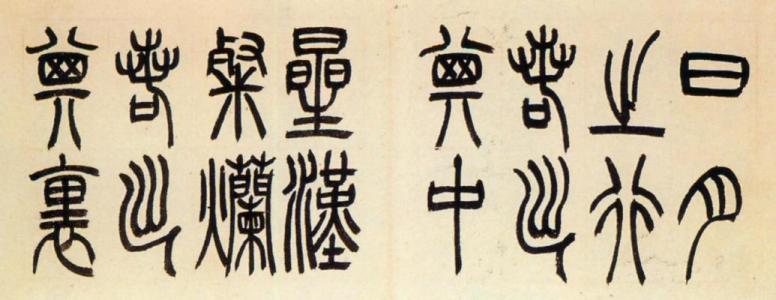 日月
之行
若出
其中
星漢
粲爛
若出
其裏